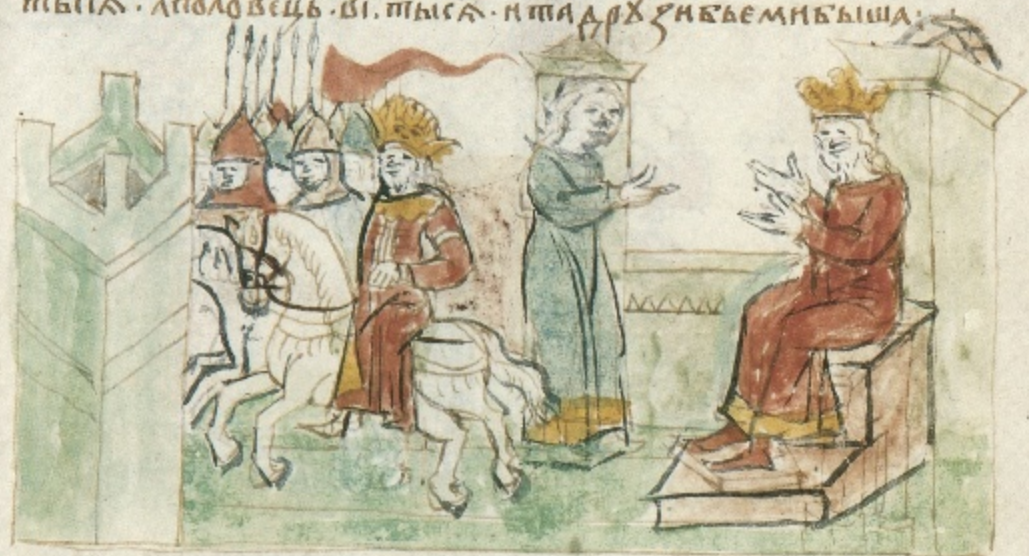 тысѧ · а половець · ві · тысѧ · и та дрꙋзи бьеми быша ·